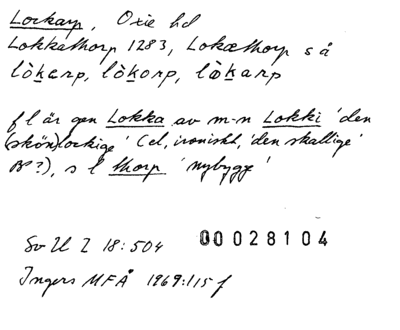 Lockarp, Oxie hd
Lokkathorp 1283, Lokæthorp s å
lòkarp, lòkorp, lòkarp
f l är gen Lokka av m-n Lokki 'den
(skön)lockige' (el, ironiskt, 'den skallige'
?), s l thorp 'nybygge'
Sv U Z 18:504 00028104
Ingers MFÅ 1969:115 f